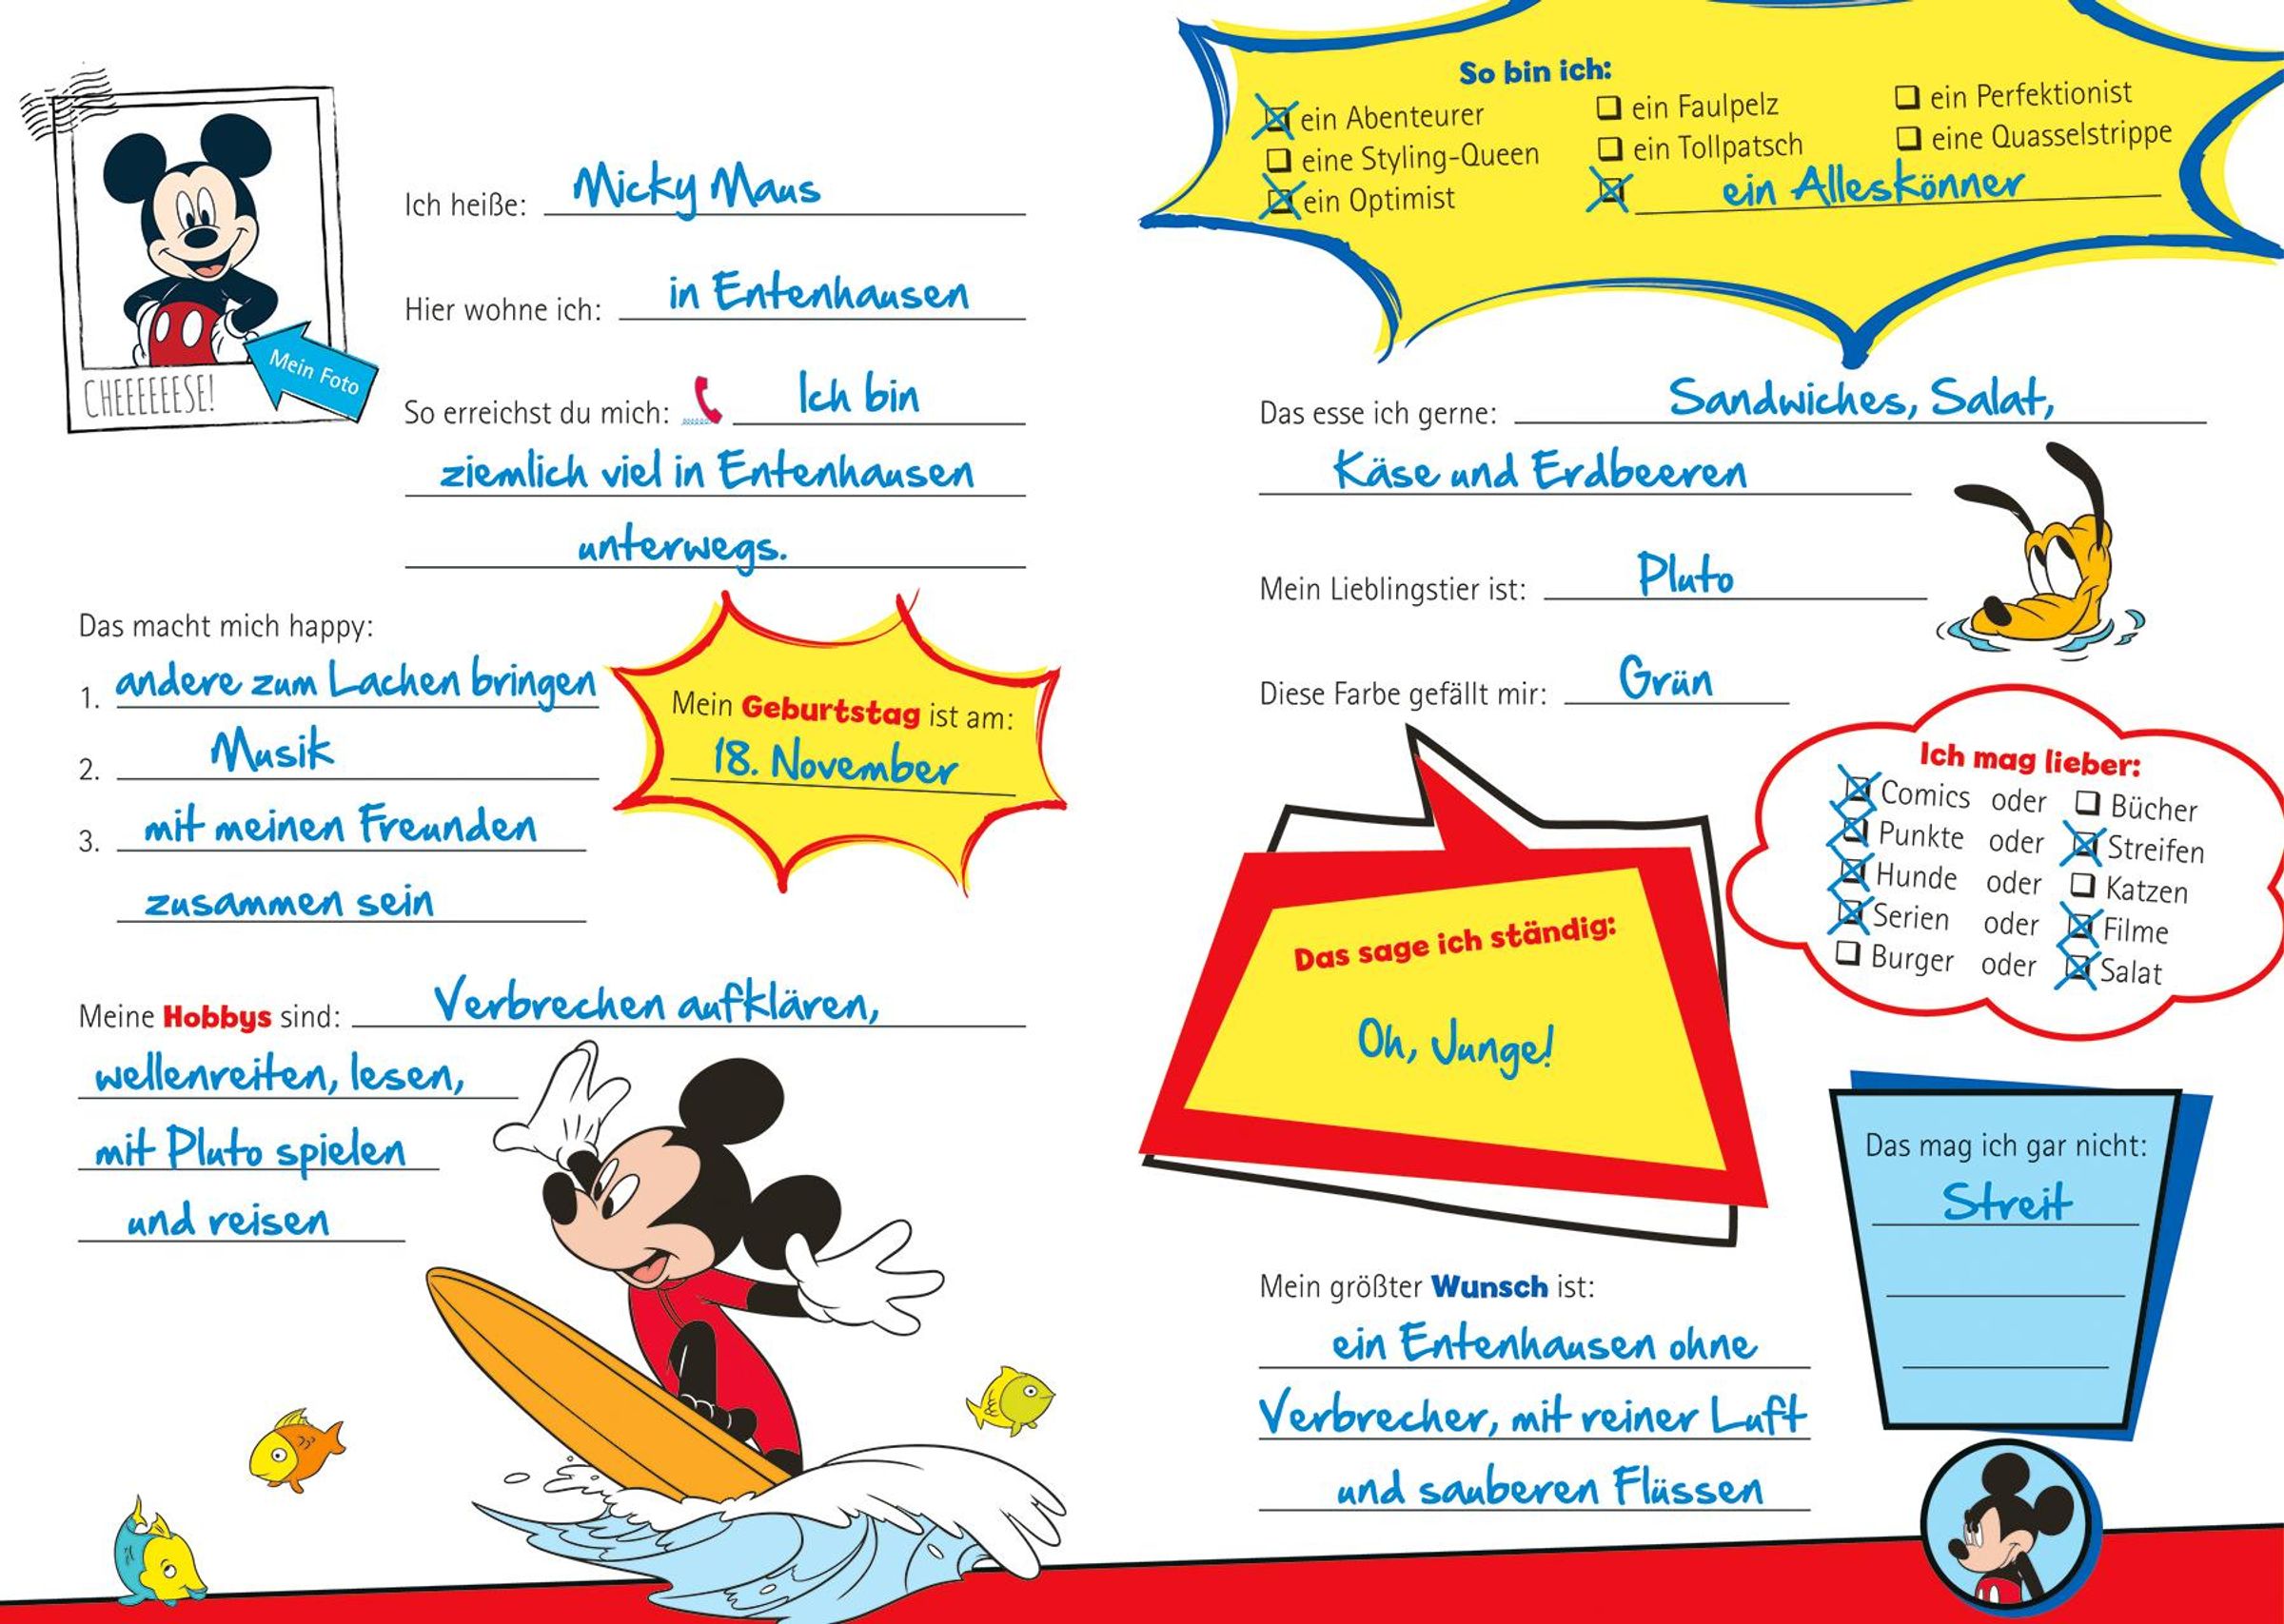 CHEEEEEESE!
Mein Foto
Ich heiße: Micky Maus
Hier wohne ich: in Entenhausen
So erreichst du mich: Ich bin
ziemlich viel in Entenhausen
unterwegs.
Das macht mich happy:
1. andere zum Lachen bringen
2. Musik
3. mit meinen Freunden
zusammen sein
Mein Geburtstag ist am:
18. November
Meine Hobbys sind: Verbrechen aufklären,
wellenreiten, lesen,
mit Pluto spielen
und reisen
So bin ich:
ein Abenteurer
eine Styling-Queen
ein Optimist
ein Faulpelz
ein Tollpatsch
ein Alleskönner
ein Perfektionist
eine Quasselstrippe
Das esse ich gerne: Sandwiches, Salat,
Käse und Erdbeeren
Mein Lieblingstier ist: Pluto
Diese Farbe gefällt mir: Grün
Ich mag lieber:
Comics oder Bücher
Punkte oder Streifen
Hunde oder Katzen
Serien oder Filme
Burger oder Salat
Das sage ich ständig:
Oh, Junge!
Das mag ich gar nicht:
Streit
Mein größter Wunsch ist:
ein Entenhausen ohne
Verbrecher, mit reiner Luft
und sauberen Flüssen